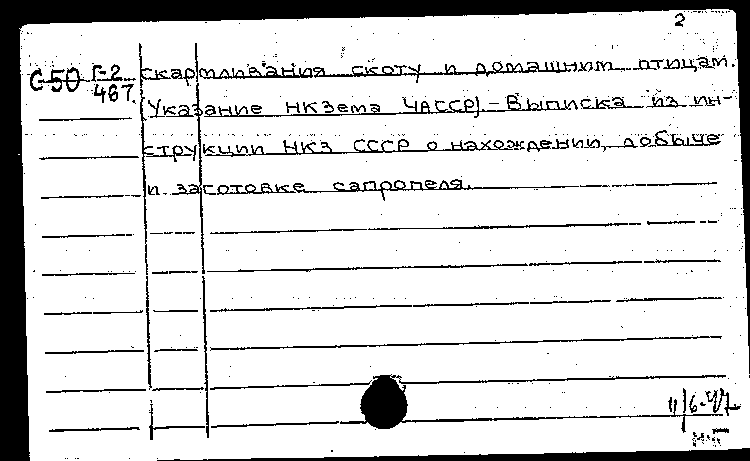 2
С-50 Г-2 скармливания скоту и домашним птицам.
467. (Указание НКЗема ЧАССР). – Выписка из ин-
струкции НКЗ СССР о нахождении, добыче
и заготовке сапропеля.
11/6-47